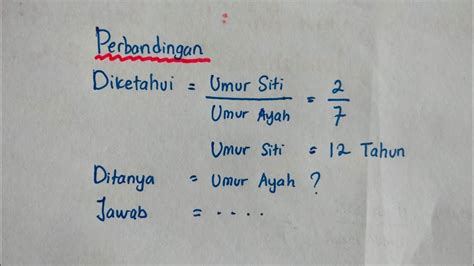 Perbandingan
Diketahui = Umur Siti / Umur Ayah = 2 / 7
Umur Siti = 12 Tahun
Ditanya = Umur Ayah ?
Jawab = ....